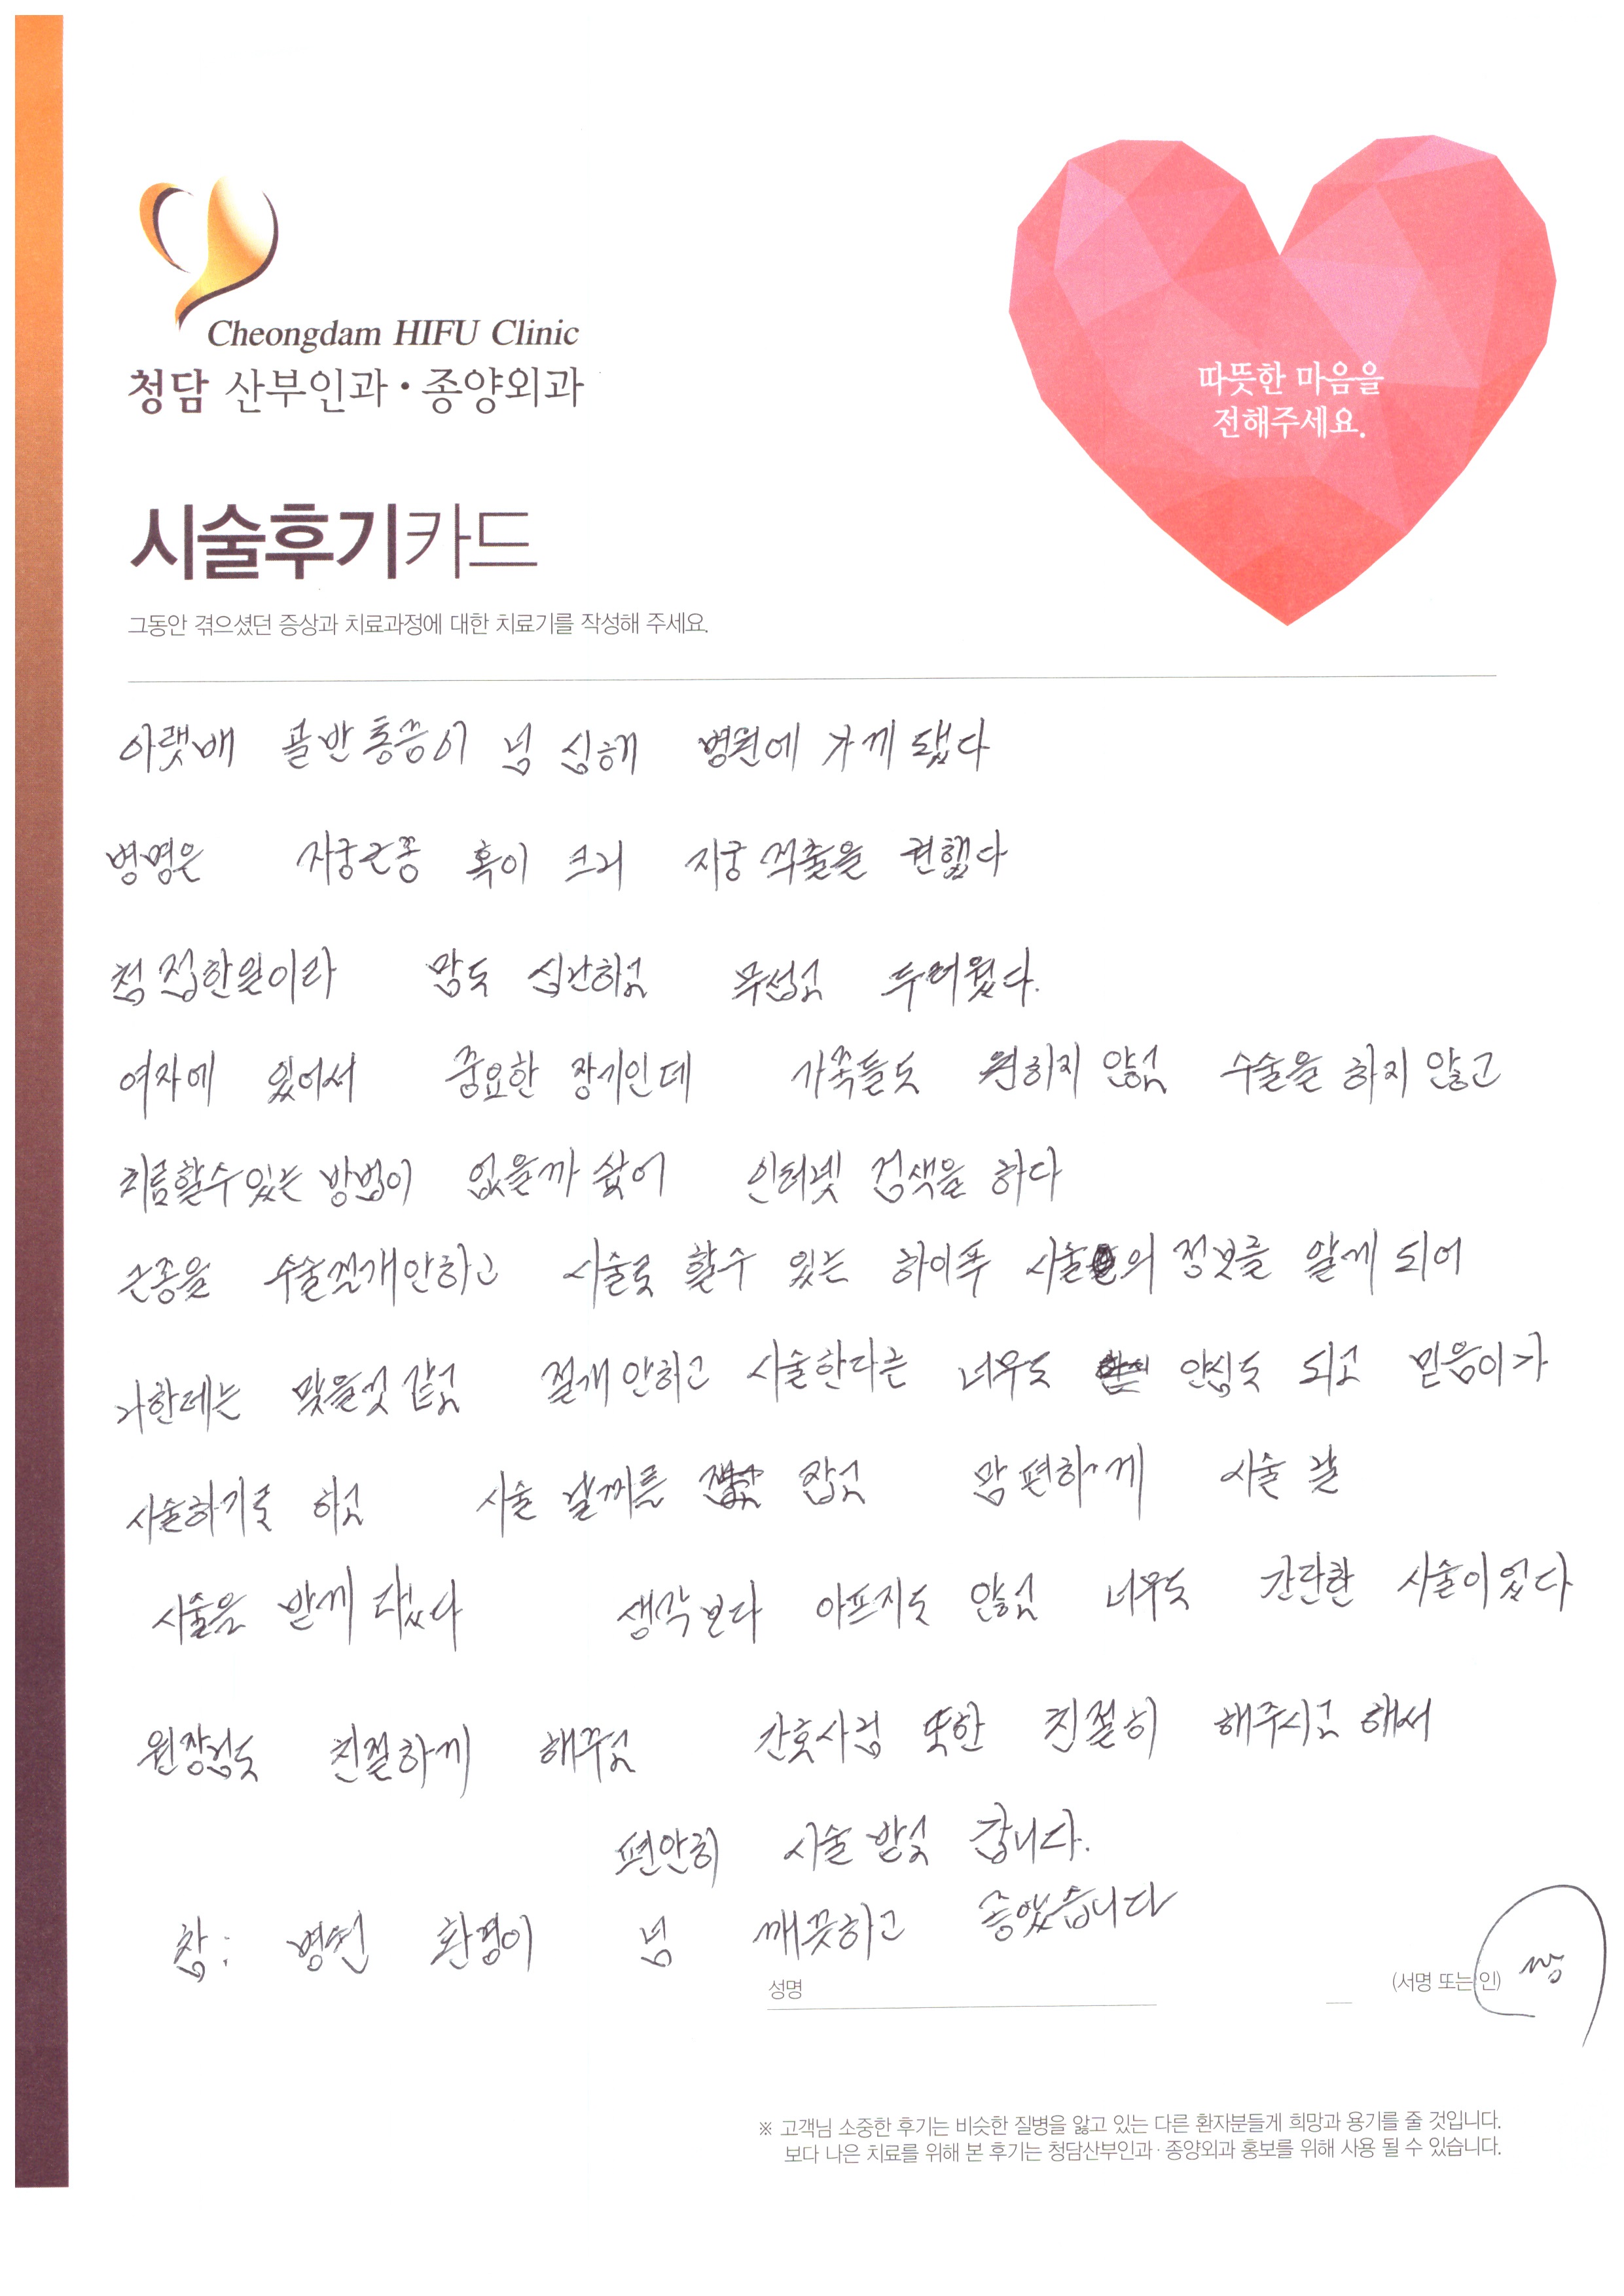 Cheongdam HIFU Clinic
청담 산부인과 · 종양외과
따뜻한 마음을
전해주세요.
시술후기카드
그동안 겪으셨던 증상과 치료과정에 대한 치료기를 작성해 주세요.
아랫배 골반통증이 넘 심해 병원에 가게 됐다
병명은 자궁근종 혹이 크러 자궁 적출을 권했다
청점한일이라 맘도 심난하고 무섭고 두려웠다.
여자에 있어서 중요한 장기인데 가족들도 원하지 않고 수술을 하지 않고
치름할수 있는 방법이 없을까 싶어 인터넷 검색을 하다
근종을 수술절개안하고 시술로 할수 있는 하이푸 시술의 정보를 알게 되어
나한테는 맞을것 같고 절개 안하고 시술한다는 너무도 안심도 되고 믿음이가
시술하기로 하고 시술 날짜를 잡고 맘 편하게 시술 날
시술을 받게 되었다 생각보다 아프지도 않고 너무도 간단한 시술이었다
원장님도 친절하게 해주고 간호사님 또한 친절히 해주시고 해서
편안히 시술 받고 갑니다.
참: 병원 환경이 넘 깨끗하고 좋았습니다
성명
(서명 또는 인)
※ 고객님 소중한 후기는 비슷한 질병을 앓고 있는 다른 환자분들게 희망과 용기를 줄 것입니다.
보다 나은 치료를 위해 본 후기는 청담산부인과 · 종양외과 홍보를 위해 사용 될 수 있습니다.